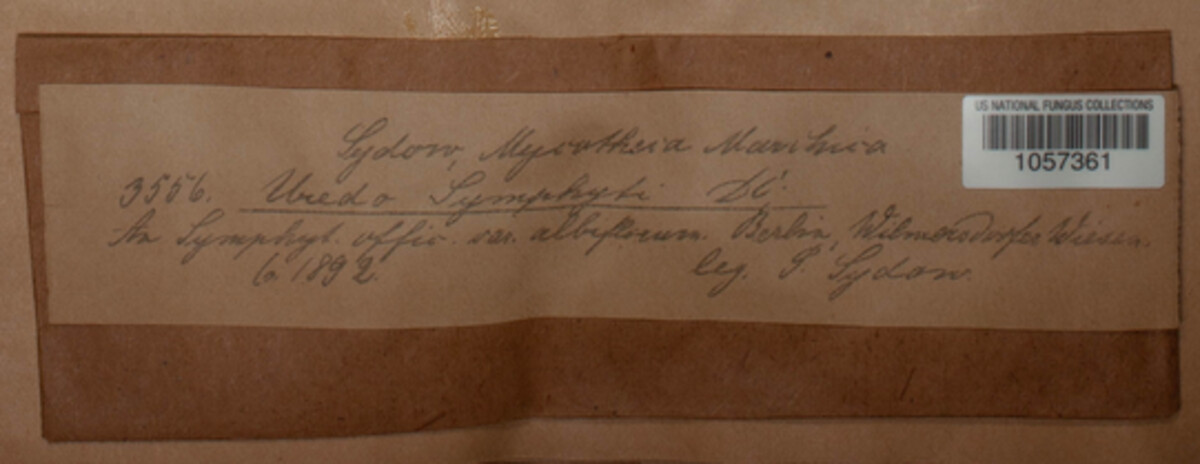 US NATIONAL FUNGUS COLLECTIONS
1057361
Sydow, Mycotheca Marchica
3556. Uredo Symphyti DC.
An Symphyt. offic. var. albiflorum. Berlin, Wilmersdorfer Wiesen.
6. 1892. leg. P. Sydow.